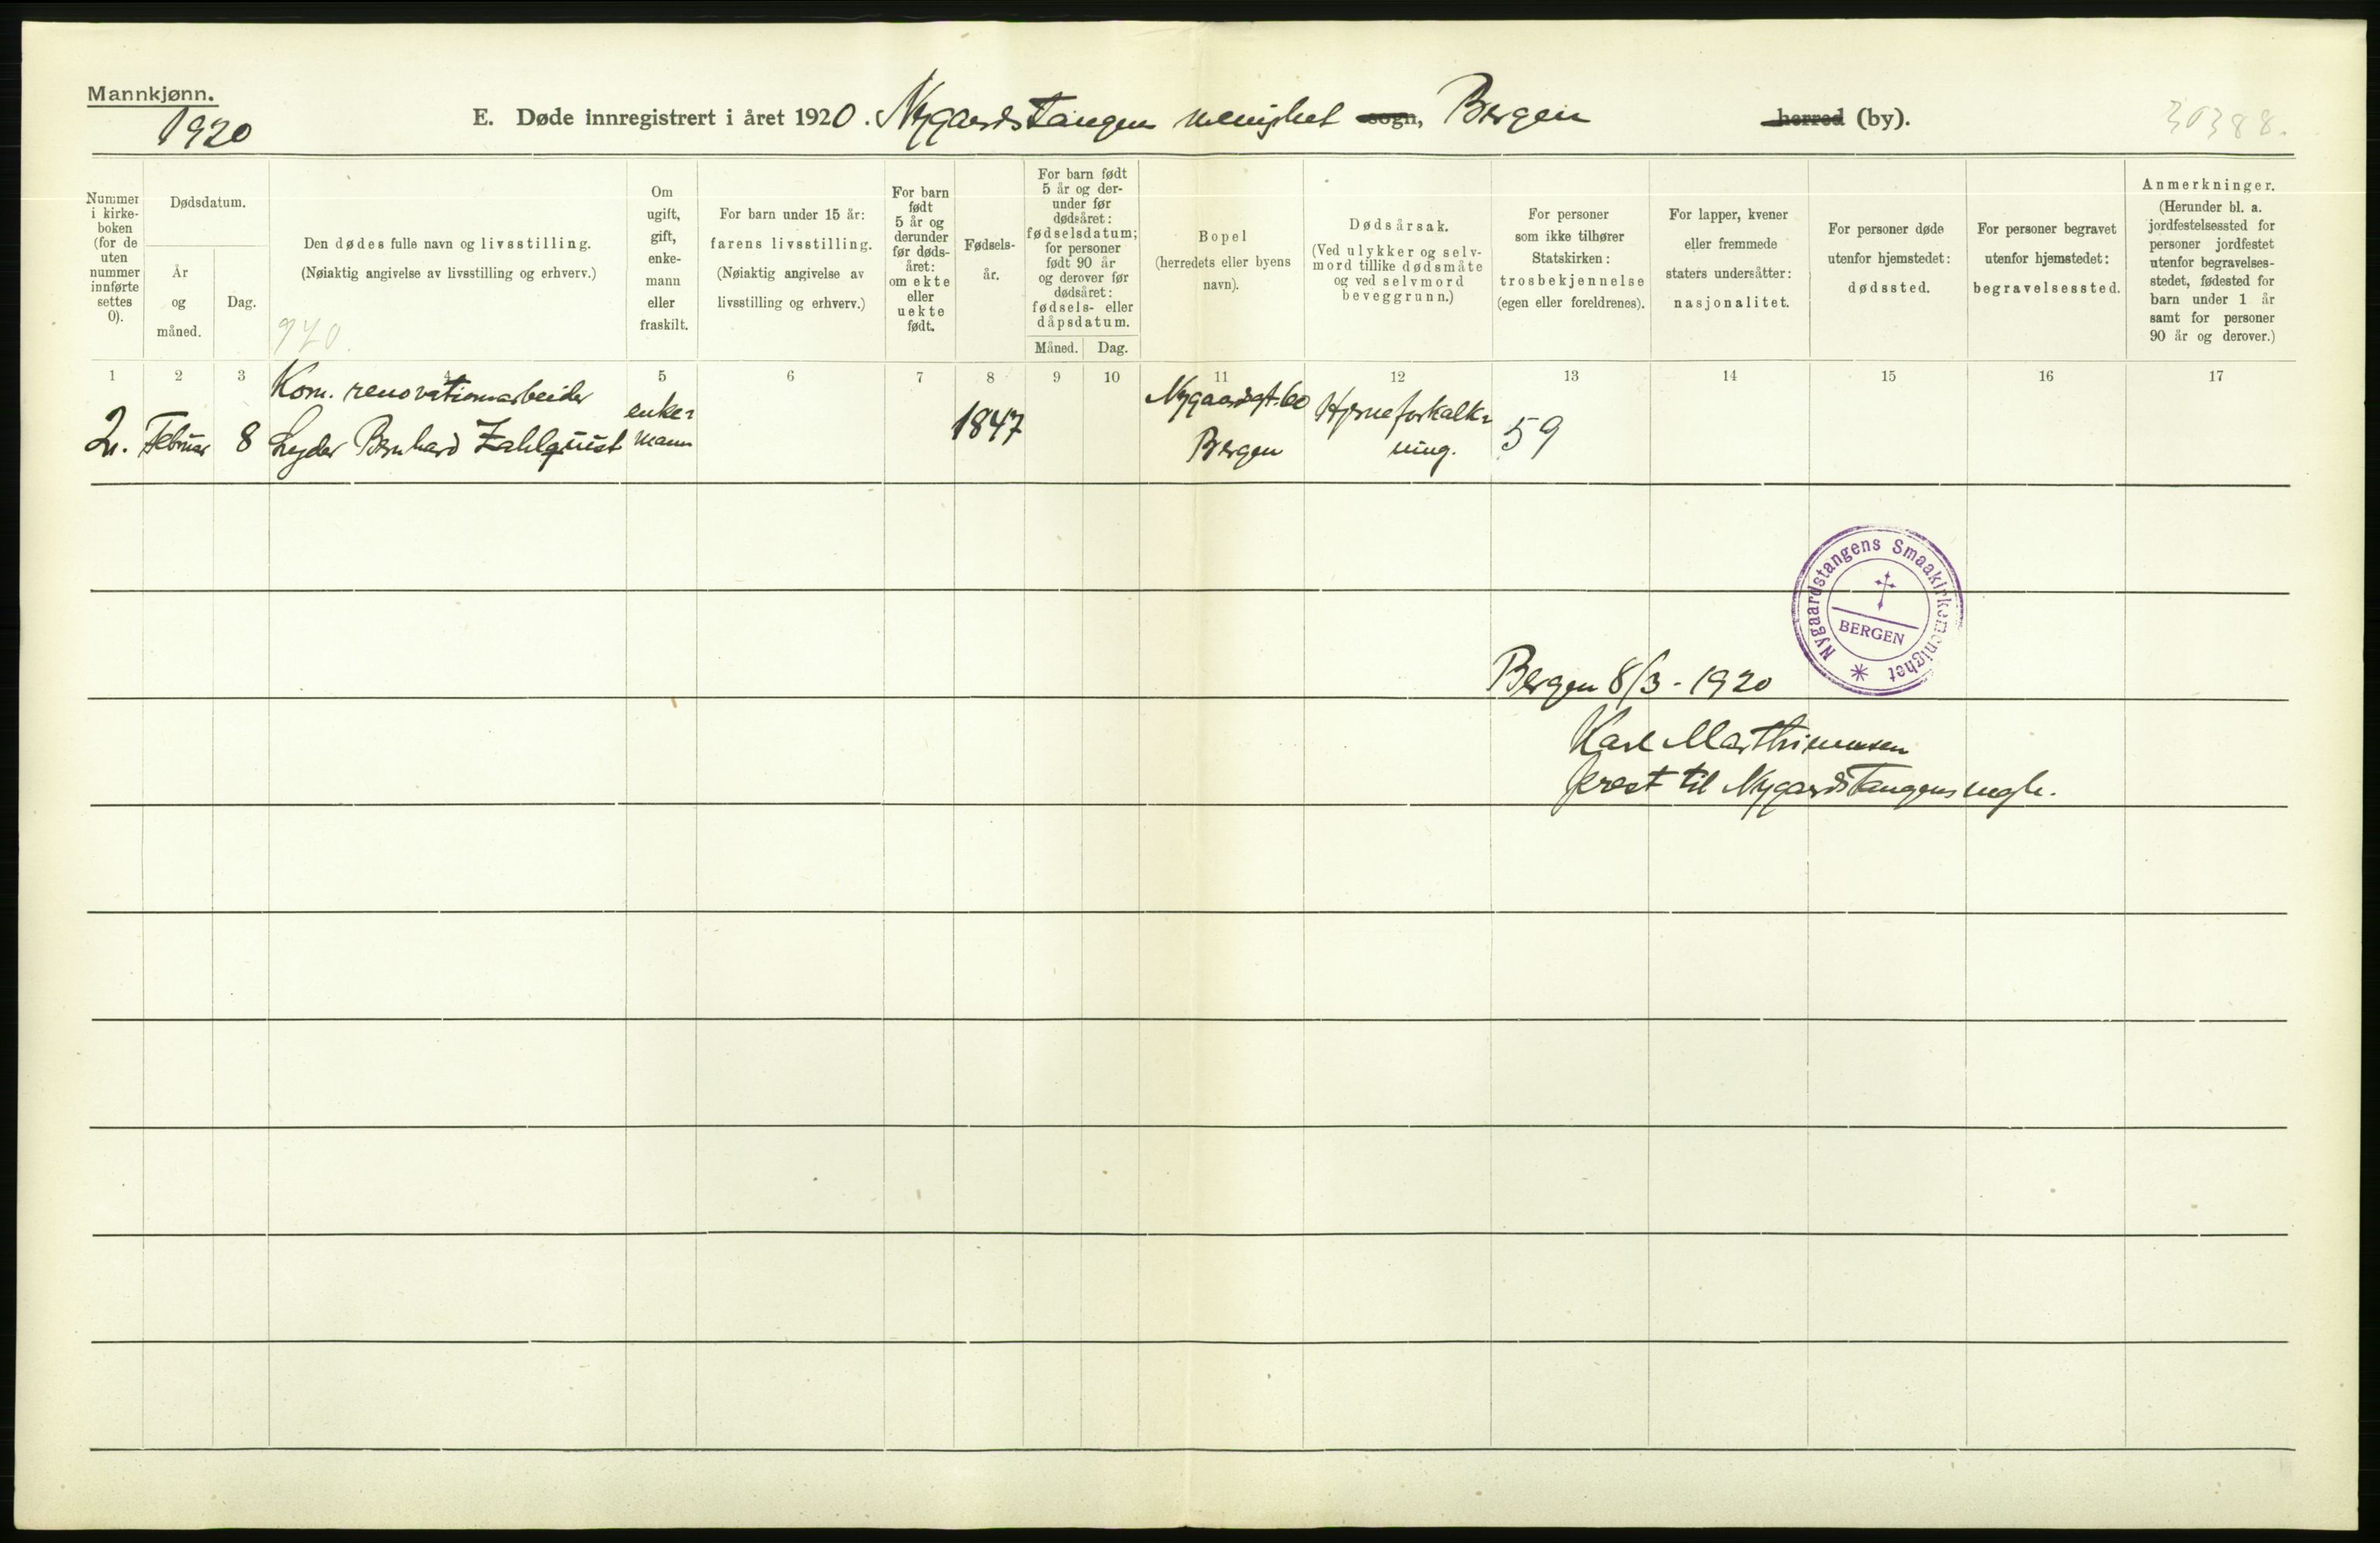 Mannkjønn.
1920
E. Døde innregistrert i året 1920. Nygaardstangen menighet sogn, Bergen herred (by).
30388.
Nummer i kirke-boken (for de uten nummer innførte settes 0).
Dødsdatum.
År og måned.
Dag.
Den dødes fulle navn og livsstilling.
(Nøiaktig angivelse av livsstilling og erhverv.)
920.
Om ugift, gift, enke-mann eller fraskilt.
For barn under 15 år:
farens livsstilling.
(Nøiaktig angivelse av livsstilling og erhverv.)
For barn født 5 år og derunder før døds-året: om ekte eller uekte født.
Fødsels-år.
For barn født 5 år og der-under før dødsåret: fødselsdatum; for personer født 90 år og derover før dødsåret: fødsels- eller dåpsdatum.
Måned. Dag.
Bopel
(herredets eller byens navn).
Dødsårsak.
(Ved ulykker og selv-mord tillike dødsmåte og ved selvmord beveggrunn.)
For personer som ikke tilhører Statskirken: trosbekjennelse (egen eller foreldrenes).
For lapper, kvener eller fremmede staters undersåtter: nasjonalitet.
For personer døde utenfor hjemstedet: dødssted.
For personer begravet utenfor hjemstedet: begravelsessted.
Anmerkninger.
(Herunder bl. a. jordfestelsessted for personer jordfestet utenfor begravelses-stedet, fødested for barn under 1 år samt for personer 90 år og derover.)
1 2 3 4 5 6 7 8 9 10 11 12 13 14 15 16 17
Kom. renovationsarbeider
2. Februar 8 Lyder Bernhard Zahlquist
enke-
mann
1847
Nygaardsgt. 60
Bergen
Hjerneforkalk-
ning.
59
Nygaardstangens Smaakirkemenighet
BERGEN
Bergen 8/3 - 1920
Karl Marthinussen
prest til Nygardstangens mgh.